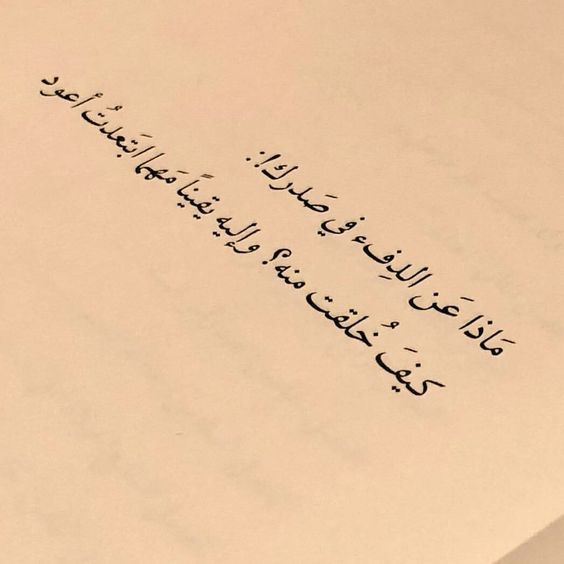 مَاذا عَن الدِفء في صَدرك!:
كيفَ خُلقت منه؟ وإليه يقيناً مَهما ابتَعدتُ أعود